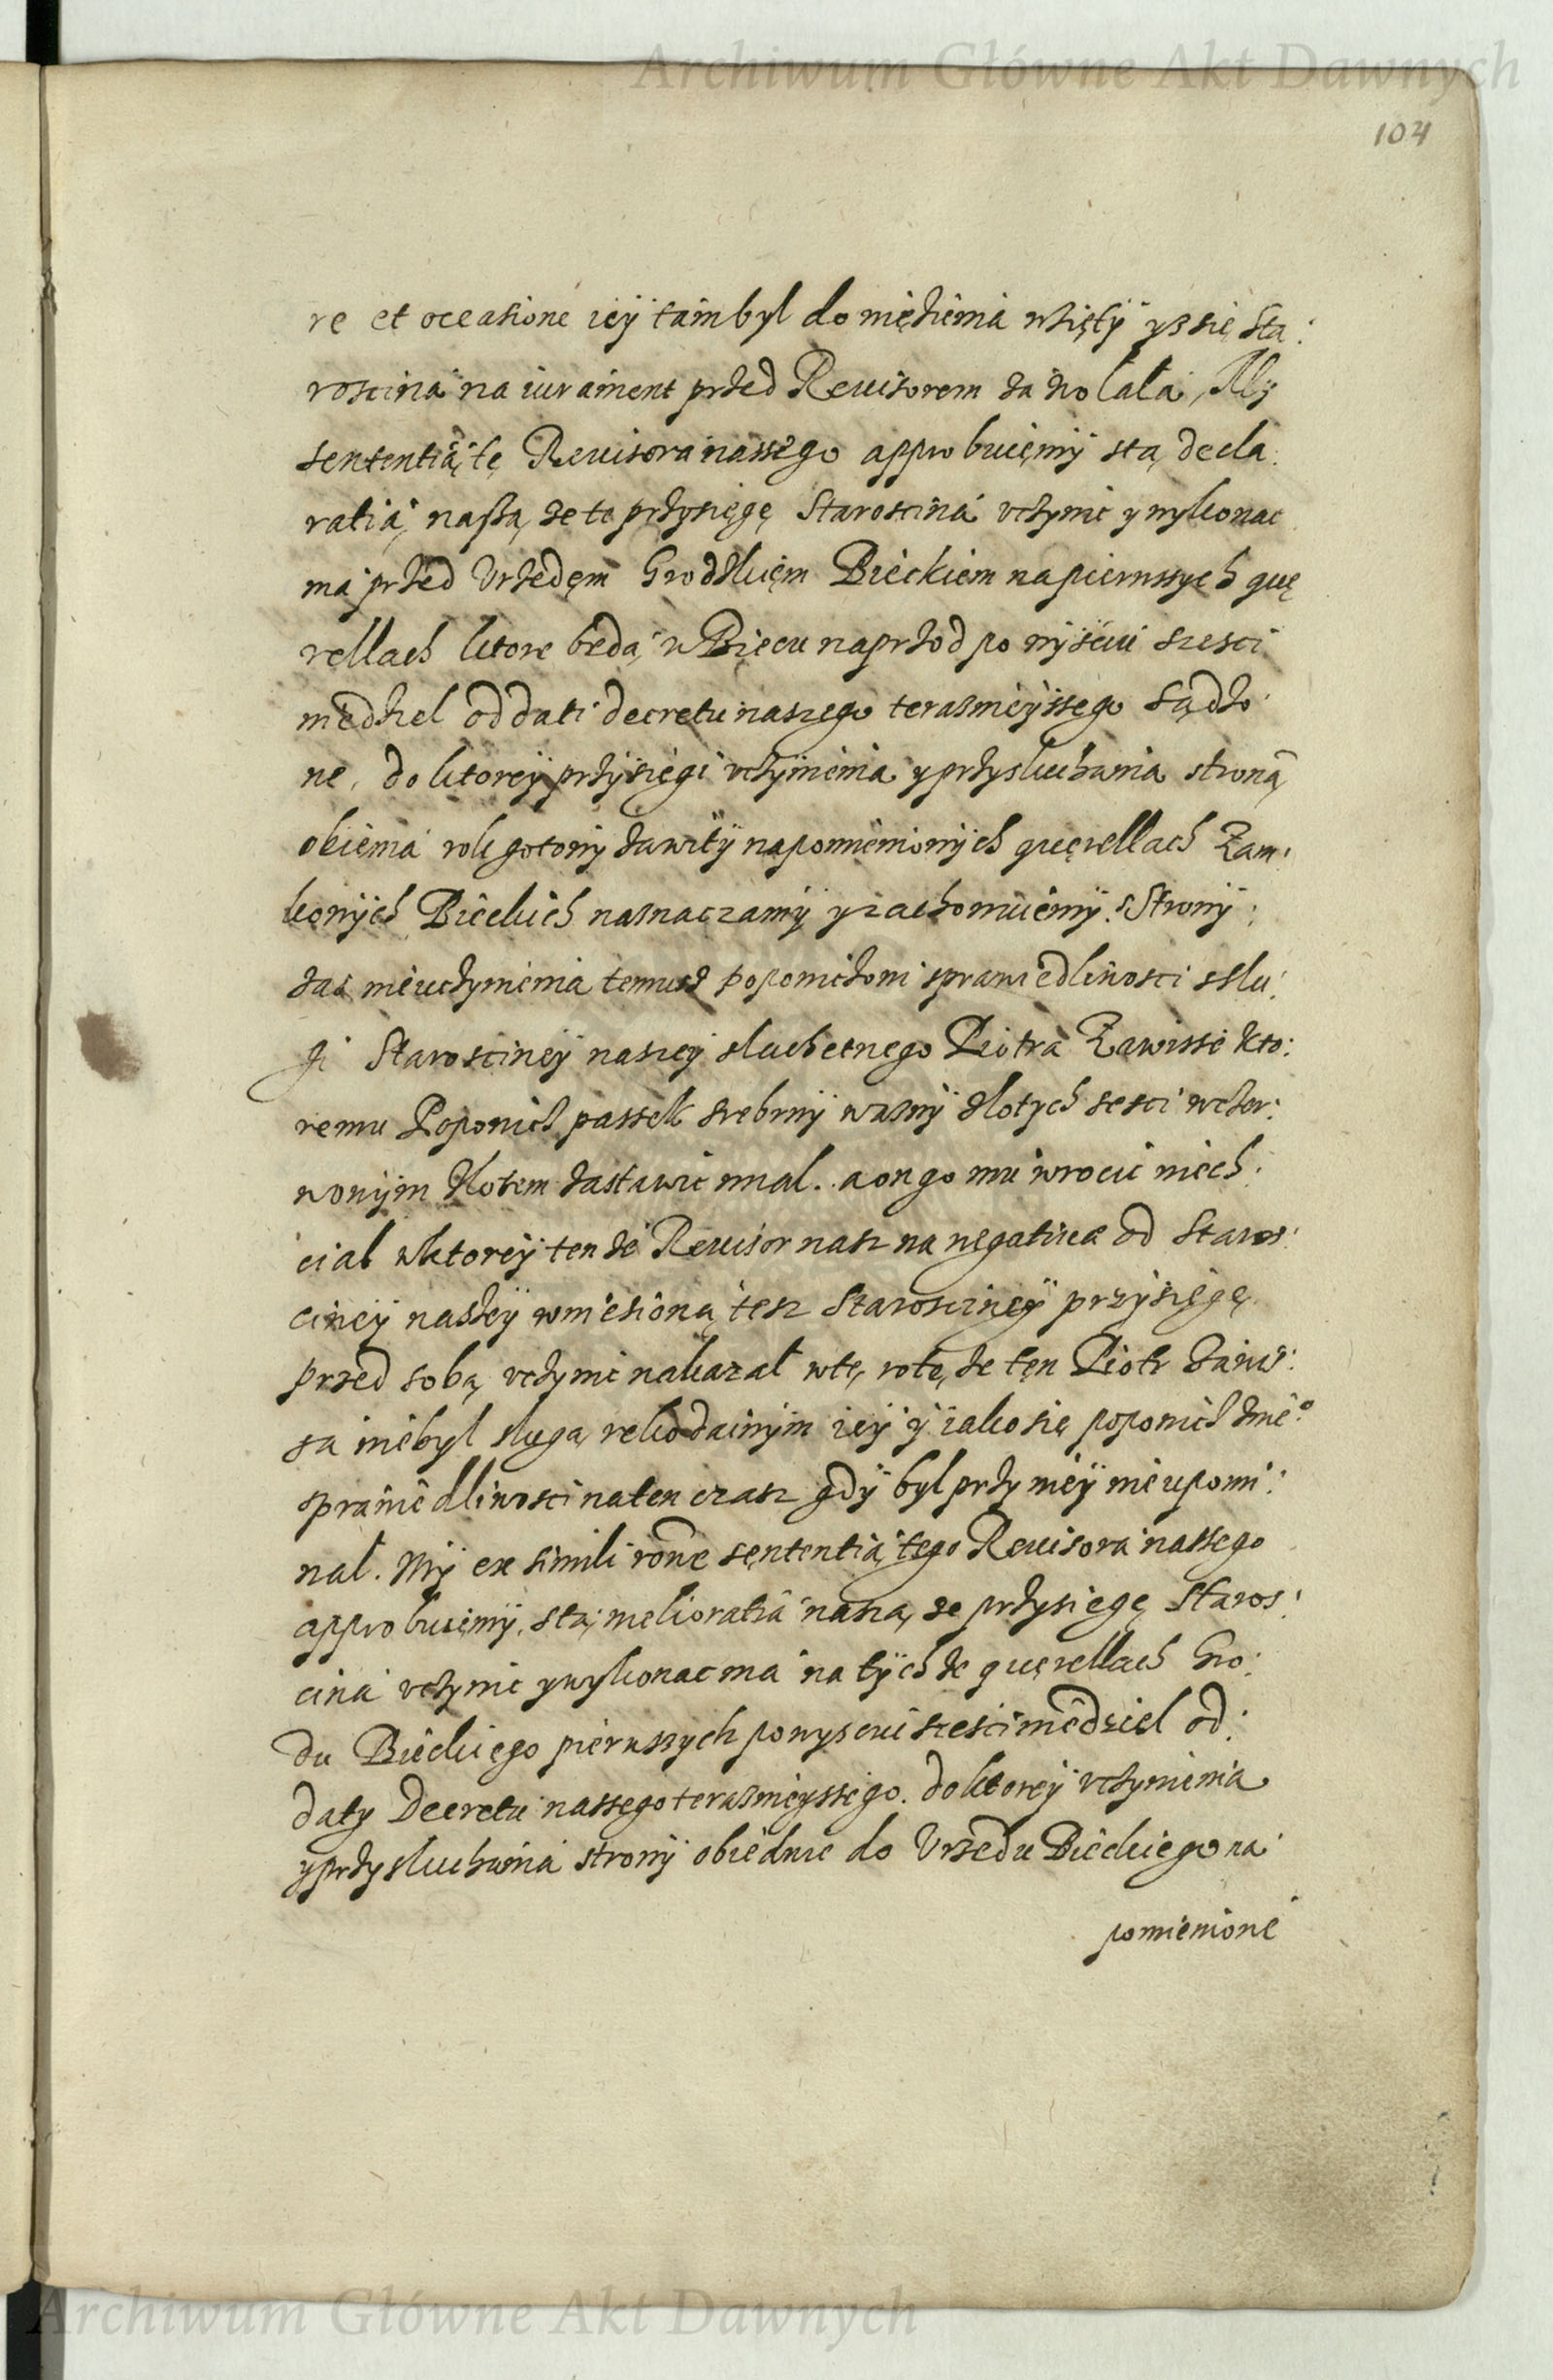 Archiwum Główne Akt Dawnych
104
re et occasione ieÿ tam był do więzienia wzięty ysz się Sta:
roscina na iurament przed Reuisorem za wolała, Mÿ
sententią tę Reuisora nassego approbuięmÿ stą decla:
ratią naszą, ze to przysięgę Staroscina vczynic y wykonac
ma przed Vrzedęm Grodzkięm Bieckiem na pierwssych quę
rellach ktore będą w Bieczu naprzod po wysciu szesci
niedziel od dati decretu naszego terasnieyssego sądzo
ne, do ktoreÿ przysięgi vczynienia y przysłuchania stroną
obiema rok gotowy zawity na pomienionych quęrellach Zam:
kowych Bieckich naznaczamÿ y zachowuięmÿ. Stronÿ:
zas nieuczynienia temusz popowiczowi sprawiedliwosci z slu:
gi Starosciney naszey sluchetnego Piotra Zawisse kto:
remu Popowicz passek srebrny wazny zlotych sesci w czer:
wonym zlotem zastawic mial. a on go mu wrocic niech:
cial w ktorey ten ze Reuisor nasz na negatiuę od Staros:
ciney naszey wniesioną tesz Starosciney przysięgę
przed sobą vczynic nakazał w tę rotę, ze tęn Piotr Zawis:
sa niebyl slugą rekodainym ieÿ ÿ iako się popowicz znie°
sprawiedliwosci na ten czasz gdÿ był przy nieÿ nie upomi:
nal. Mÿ ex simili rone sęntentią tego Reuisora nassego
approbuięmÿ, stą melioratią naszą, ze przysięgę Staros:
cina vczynic y wykonac ma na tÿch ze quęrellach Gro:
du Bieckięgo pierwszych po wysciu szesci niedziel od:
daty Decretu nassęgo terasnieyssego. do ktorey vczynienia
y przysluchania strony obiedwie do Vrzedu Bieckięgo na
pomienione
Archiwum Główne Akt Dawnych